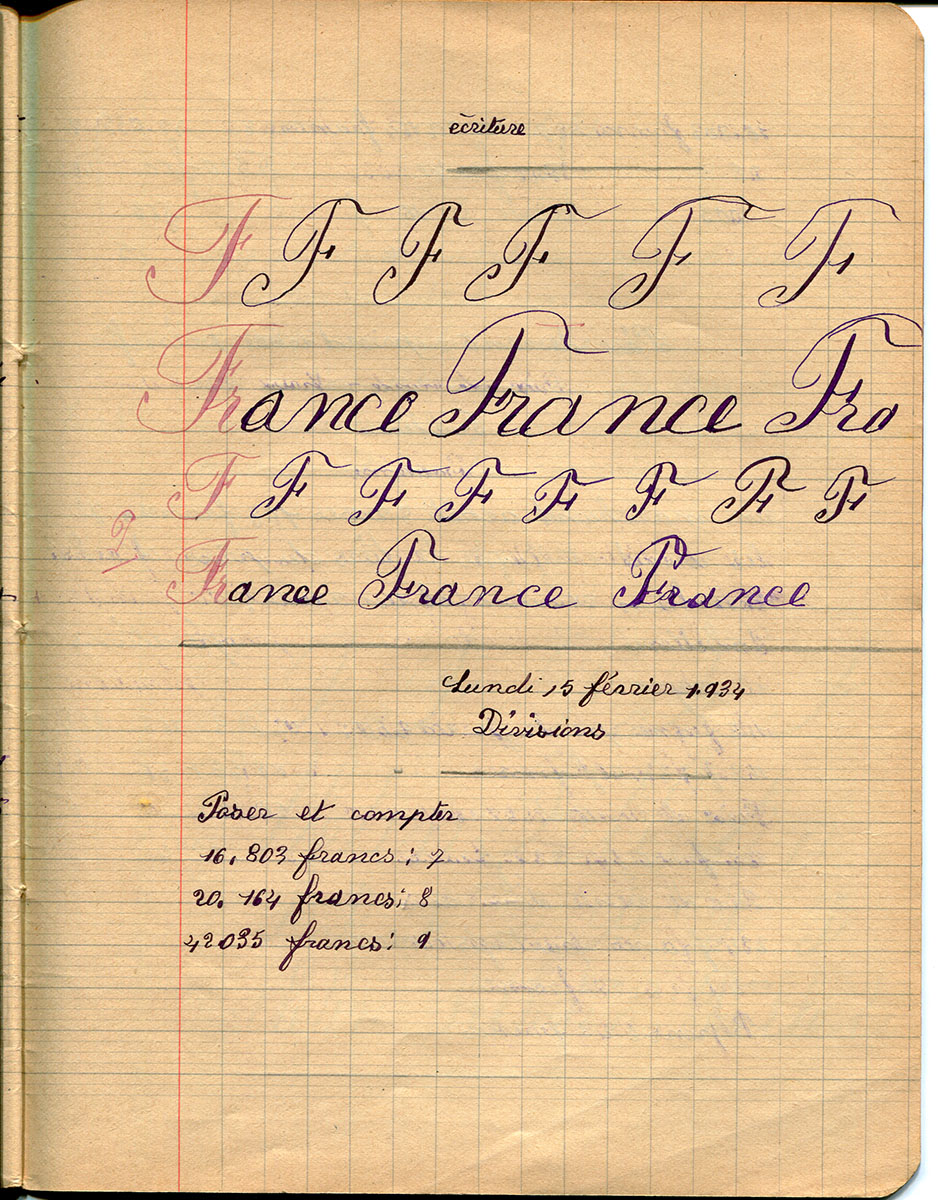 écriture
F F F F F F
France France Fra
F F F F F F F F
France France France
Lundi 15 février 1.934
Divisions
Poser et compter
16.803 francs : 7
20.164 francs : 8
42035 francs : 9